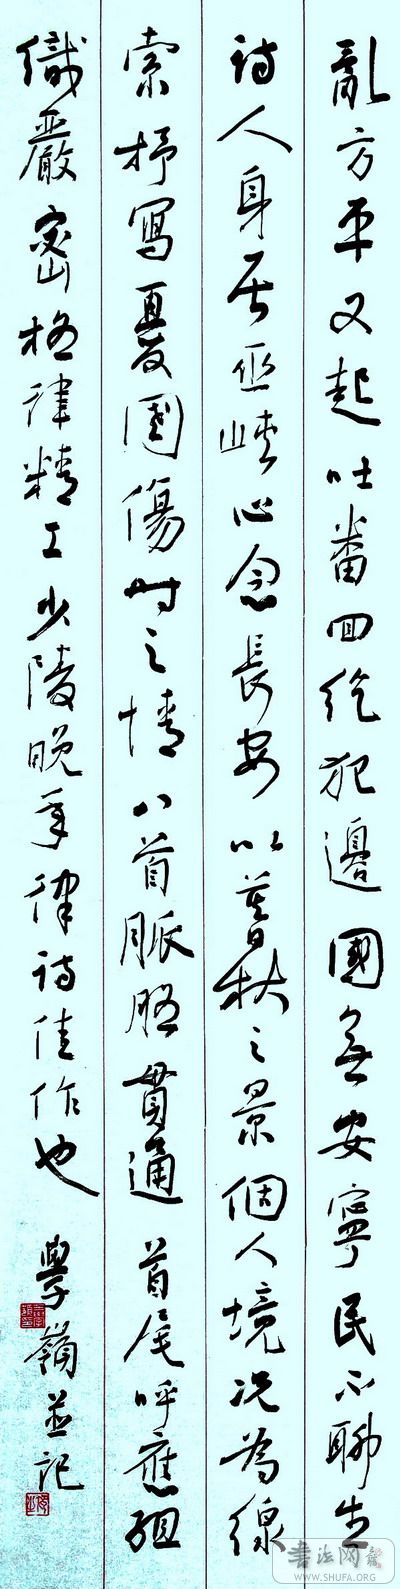 亂方平又起吐蕃回紇犯邊國無安寧民不聊生
詩人身居巫峽心念長安以暮秋之景個人境況為線
索抒寫憂國傷時之情八首脈胳貫通首尾呼應組
織嚴密格律精工少陵晚年律詩佳作也
學嶺並記
書法网
WWW.SHUFA.ORG